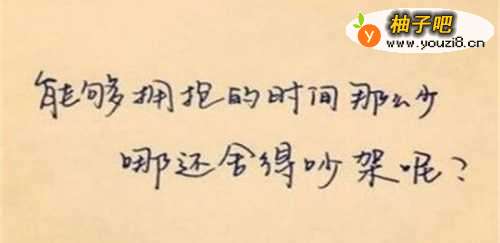 柚子吧
www.youzi8.cn
能够拥抱的时间那么少
哪还舍得吵架呢?